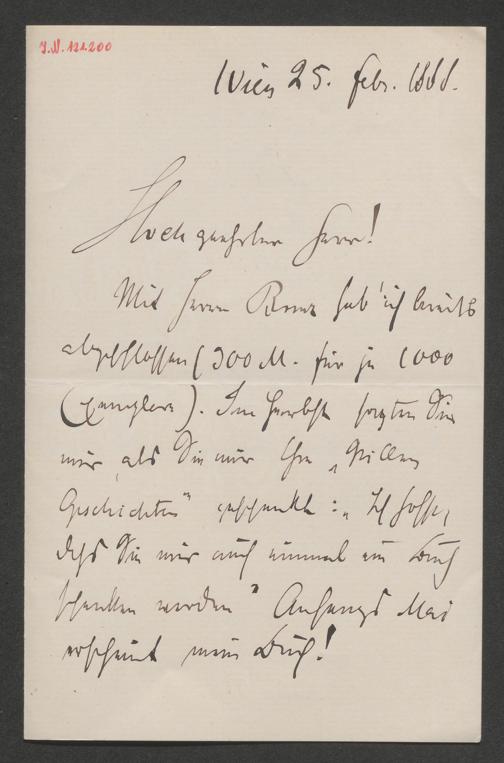 J.N. 121.200
Wien 25. Febr. 1888.
Hochgeehrter Herr!
Mit Herrn Bonz hab' ich bereits
abgeschlossen (300 M. für je 1000
Exemplare). Im Herbste sagten Sie
mir, als Sie mir Ihre „Stillen
Geschichten" geschenkt: „Ich hoffe,
daß Sie mir auch einmal ein Buch
schenken werden" Anfangs Mai
erscheint mein Buch!